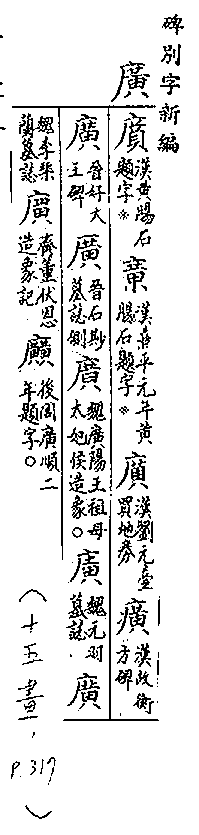 碑別字新編
廣
廣 漢黃腸石題字※
廣 漢熹平元年黃腸石題字※
廣 漢劉元臺買地券
廣 漢故衡方碑
廣 晉好大王碑
廣 晉石尠墓誌側
廣 魏廣陽王祖母太妃侯造象○
廣 魏元羽墓誌
廣 魏李榘蘭墓誌
廣 齊董伏恩造象記
廣 後周廣順二年題字○
(十五畫,
P.317)